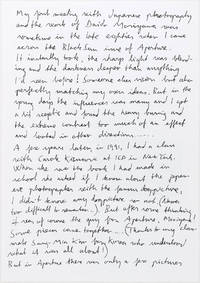 My first meeting with Japanese photography
and the work of Daido Moriyama was
sometime in the late eighties when I came
across the Black Sun issue of Aperture.
It instantly took, the sharp light was blend-
ing and the darkness deeper than anything
I'd seen before! Someone elses vision but also
perfectly matching my own ideas. But in the
young days the influences was many and I got
a bit sceptic and found the heavy burning and
the extreme contrast too much of an effect
and looked in other directions.....
A few years later, in 1991, I had a class
with at ICP in New York.
When she saw the book I had made in
school she asked if I knew about the japan-
ese photographer with the famous dogpicture,
I didn't know any dogpicture or not (
too difficult to remember..). But after some thinking
it was of course the guy from Aperture, Moriyama!
Some pieces came together....(Thanks to my class-
mate Sung-Min Kim from Korea who understood
what it was all about!)
But in Aperture there were only a few pictures